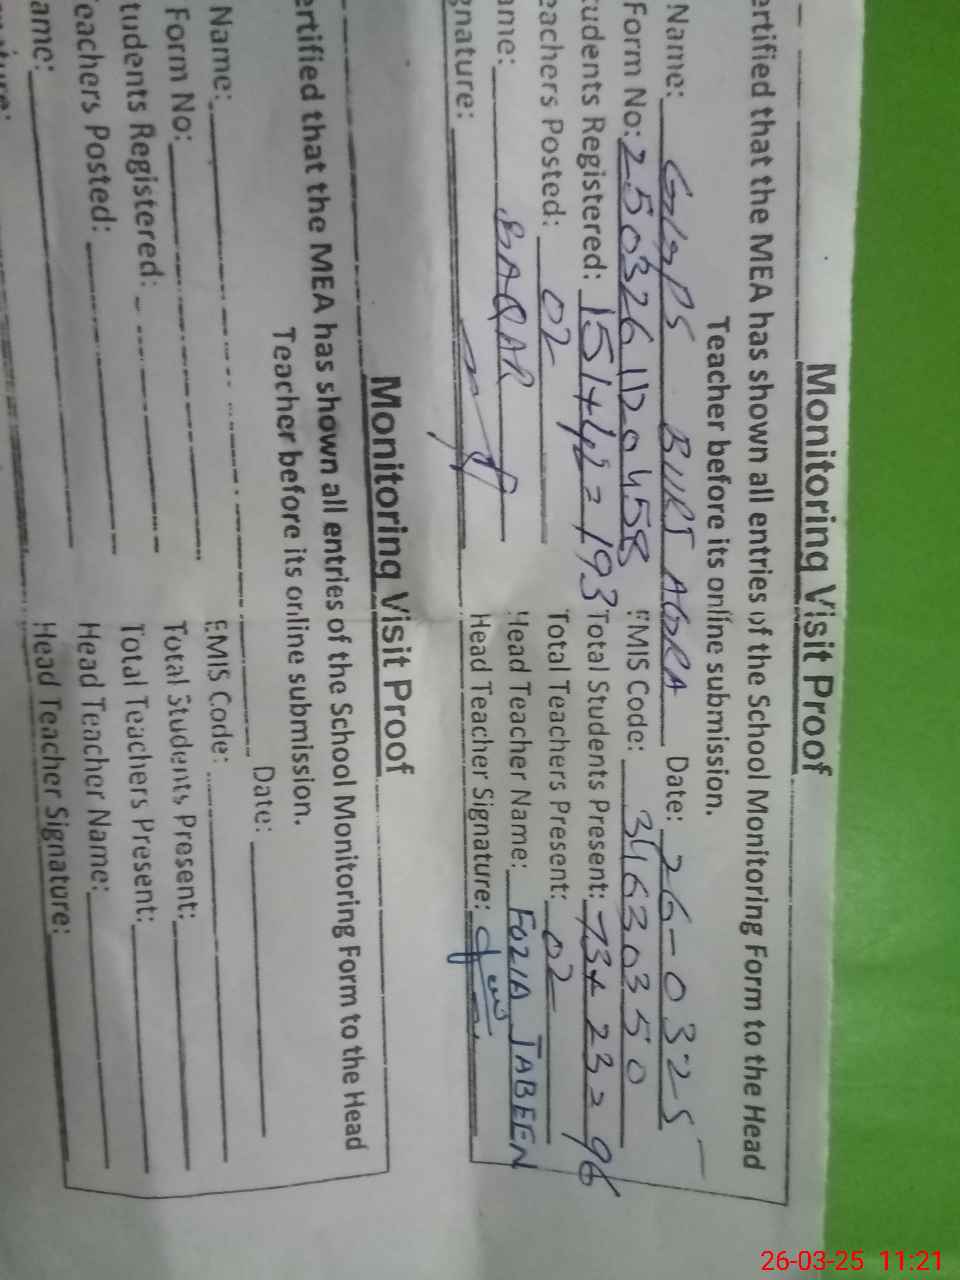 Monitoring Visit Proof
ertified that the MEA has shown all entries of the School Monitoring Form to the Head
Teacher before its online submission.
Name: BURJ AGRA Date: 26-03-25
Form No: 250326 EMIS Code: 34630350
tudents Registered: 151+42=193 Total Students Present: 73+23=96
eachers Posted: 02 Total Teachers Present: 02
ame: BAQAR Head Teacher Name: FOZIA JABEEN
gnature: Head Teacher Signature:
Monitoring Visit Proof
ertified that the MEA has shown all entries of the School Monitoring Form to the Head
Teacher before its online submission.
Name: Date:
Form No: EMIS Code:
tudents Registered: Total Students Present:
eachers Posted: Total Teachers Present:
ame: Head Teacher Name:
Head Teacher Signature:
26-03-25 11:21